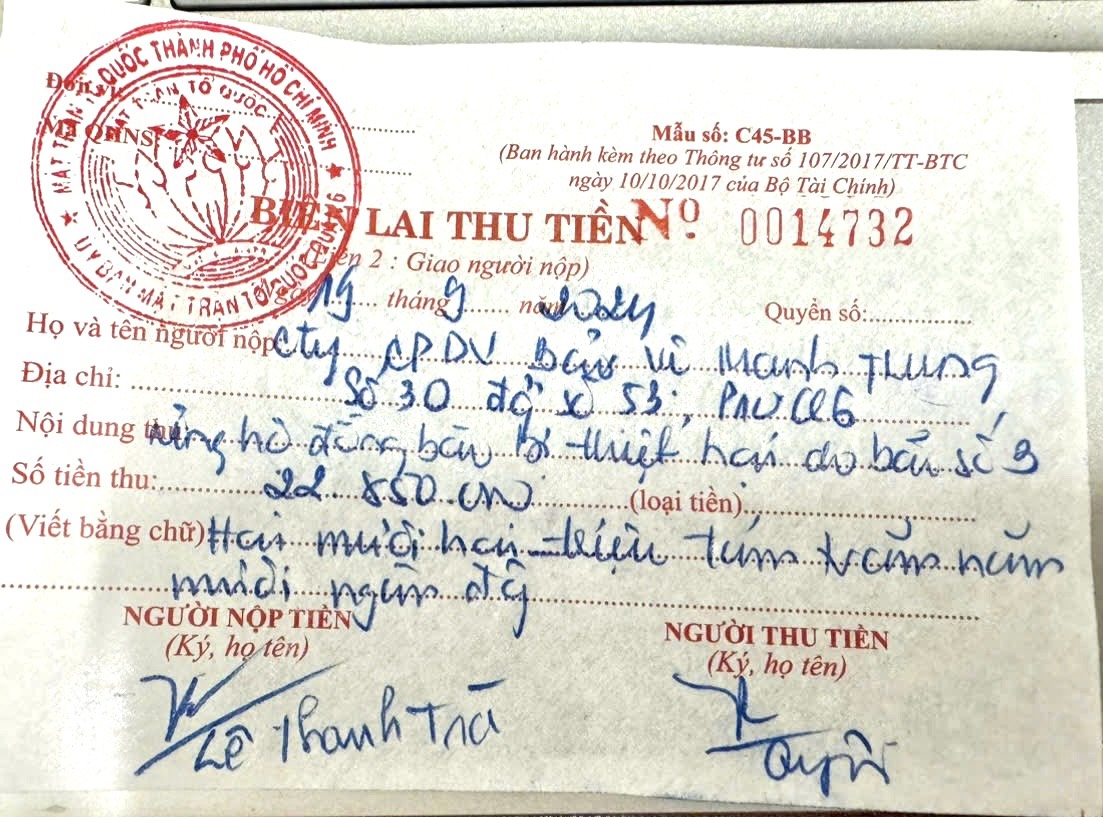 MẶT TRẬN TỔ QUỐC THÀNH PHỐ HỒ CHÍ MINH
MẶT TRẬN TỔ QUỐC
ỦY BAN MẶT TRẬN TỔ QUỐC QUẬN 6
Đơn vị
Mã QHNS
Mẫu số: C45-BB
(Ban hành kèm theo Thông tư số 107/2017/TT-BTC
ngày 10/10/2017 của Bộ Tài Chính)
BIÊN LAI THU TIỀN Nº 0014732
(Liên 2 : Giao người nộp)
ngày 19 tháng 9 năm 2024 Quyển số:
Họ và tên người nộp Cty CPDV Bảo Vệ Mạnh Trung
Địa chỉ: Số 30 đg số 53, Q6
Nội dung thu ủng hộ đồng bào bị thiệt hại do bão số 3
Số tiền thu: 22 850.000 (loại tiền)
(Viết bằng chữ) Hai mươi hai triệu tám trăm năm
mươi ngàn đg
NGƯỜI NỘP TIỀN
(Ký, họ tên)
NGƯỜI THU TIỀN
(Ký, họ tên)
Lê Thanh Trà